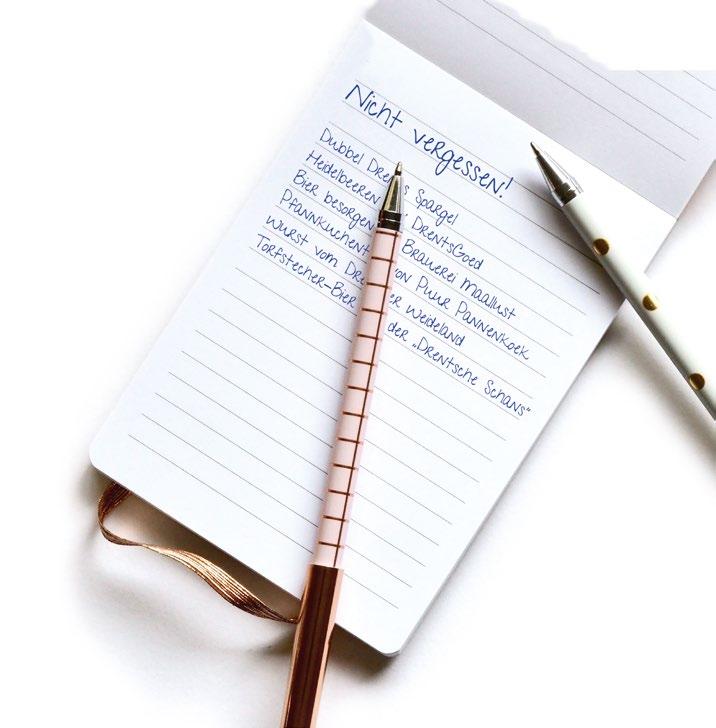 Nicht vergessen!
Dubbel Spargel
Heidelbeeren DrentsGoed
Bier besorgen Brauerei Maallust
Puur Pannenkoek
Wurst vom Weideland
Torfstecher-Bier der „Drentsche Schans“